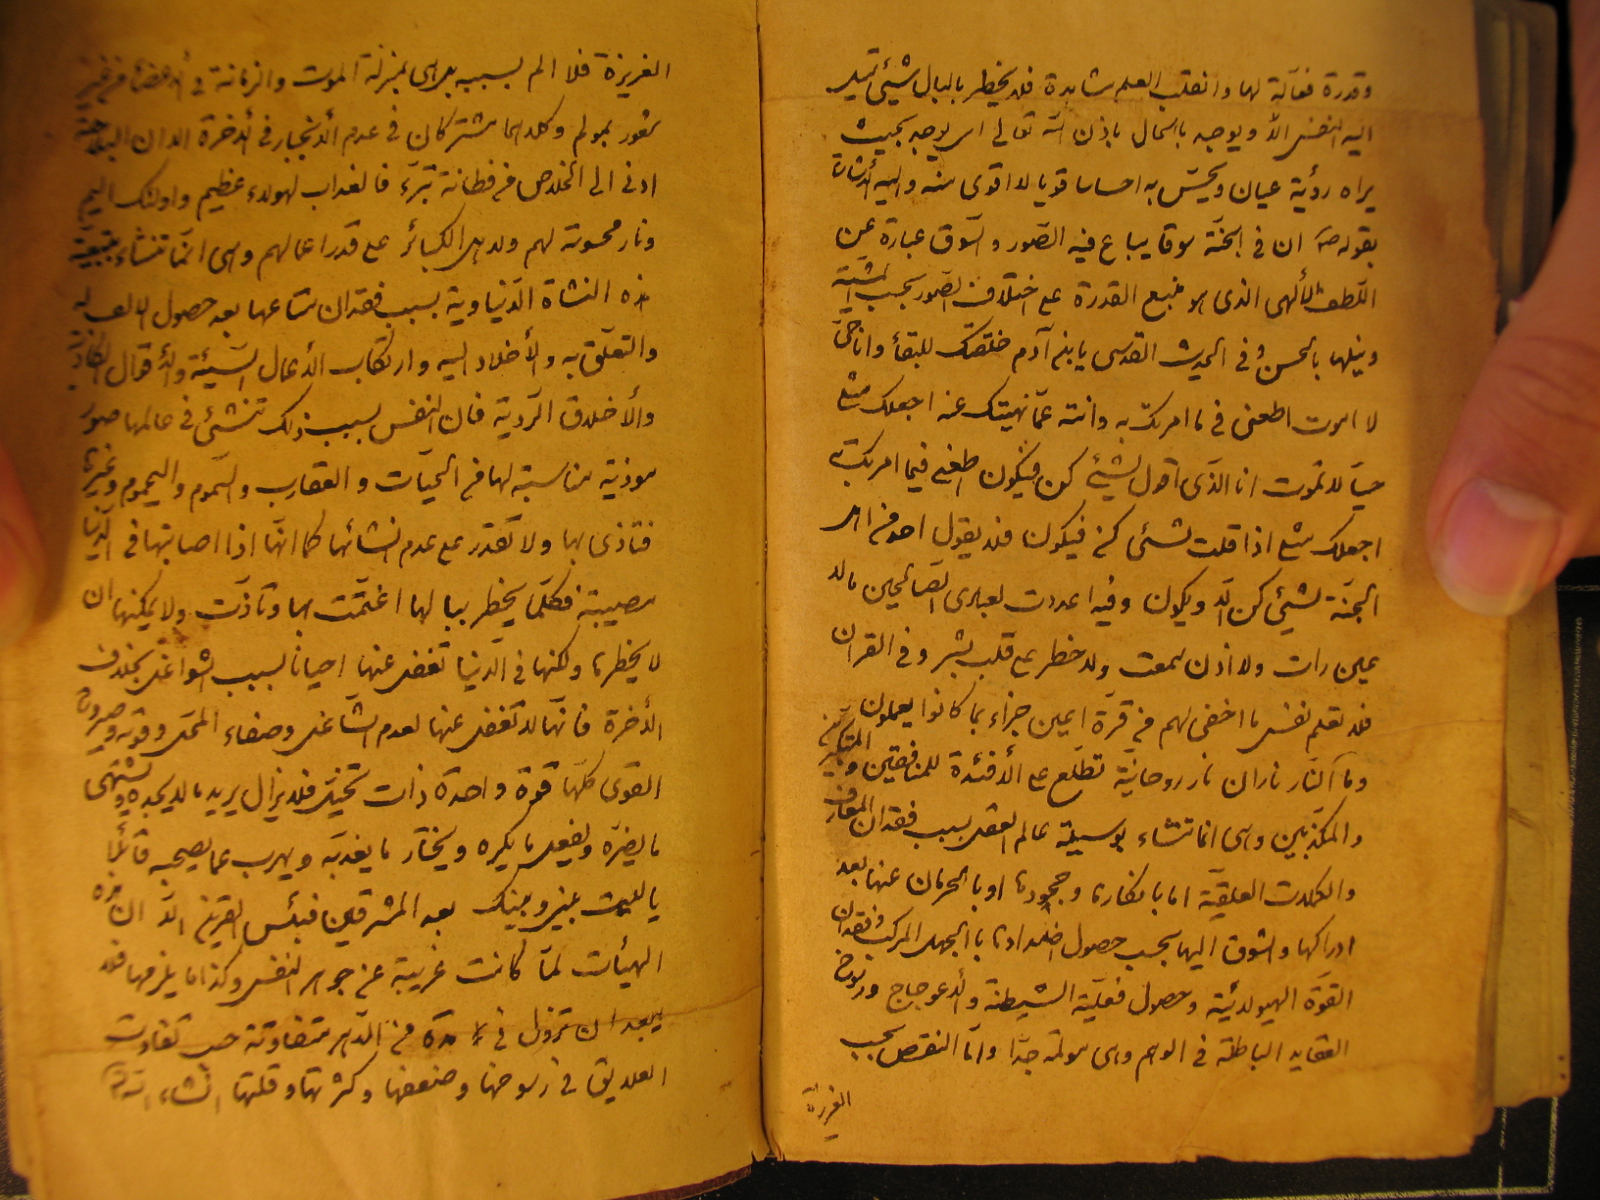 وقدرة فعالة لها وانقلب العلم مشاهدة فلا يخطر بالبال شيئ تميل
اليه النفس الا ويوجد بالحال باذن الله تعالى اى يوجد بحيث
يراه رؤية عيان ويحسّ به احساسا قويا لا اقوى منه واليه الأشارة
بقوله صه ان في الجنّة سوقا يباع فيه الصّور والسّوق عبارة عن
اللّطف الألهى الذى هو منبع القدرة على اختلاف الصّور بحسب المشيّة
ونيلها بالحسّ وفى الحديث القدسى يابن آدم خلقتك للبقاء وانا حىّ
لا اموت اطعنى في ما امرتك به وانته عمّا نهيتك عنه اجعلك مثلى
حيّا لا تموت انا الذّى اقول لشيئ كن فيكون اطعنى فيما امرتك به
اجعلك مثلى اذا قلت لشيئ كن فيكون فلا يقول احد من اهل
الجنّة لشيئ كن الّا ويكون وفيه اعددت لعبادى الصّالحين مالا
عين رات ولا اذن سمعت ولا خطر على قلب بشر وفى القرآن
فلا تعلم نفس ما اخفى لهم من قرّة اعين جزاء بما كانوا يعملون
وما النّار ناران نار روحانيّة تطّلع على الأفئدة للمنافقين والمتكبّرين
والمكذّبين وهى انما تنشاء بوسيلة عالم العقل بسبب فقدان المعارف
والكمالات العقليّة اما بانكارها وجحودها او بالحرمان عنها بعد
ادراكها والشوق اليها بحسب حصول اضدادها بالجهل المركب وفقدان
القوّة الهيولائيّة وحصول فعليّة الشيطنة والأعوجاج ورسوخ
العقايد الباطلة في الوهم وهى مولمة جدّا وامّا النقص بحسب
الغريزة
الغريزة فلا الم بسببه بل هى بمنزلة الموت والزمانة في الأعضاء من غير
شعور بمولم وكلاهما مشتركان في عدم الأنجبار في الأخرة الا ان البلاهة
ادنى الى الخلاص من فطانة بتراء فالعذاب لهولاء عظيم واولئك اليم
ونار محسوسة لهم ولاهل الكبائر على قدر اعمالهم وهى انّما تنشاء بتبعيّة
هذه النشاة الدّنياوية بسبب فقدان متاعها بعد حصول الالف له
والتعلّق به والأخلاد اليه وارتكاب الأعمال السّيئة والأقوال الكاذبة
والأخلاق الرّدية فان النفس بسبب ذلك تنشئ في عالمها صور
موذية مناسبة لها من الحيّات والعقارب والسّموم واليحموم وغيرها
فتاذى بها ولا تقدر على عدم انشائها كما انّها اذا اصابتها في الدّنيا
مصيبة فكلّما يخطر ببالها اغتمّت بها وتاذّت ولا يمكنها ان
لا يخطرها ولكنها في الدّنيا تغفل عنها احيانا بسبب الشواغل بخلاف
الأخرة فانّها لا تغفل عنها لعدم الشّاغل وصفاء المحل وقوته وصيرورة
القوى كلّها قوة واحدة ذات تخيّل فلا يزال يريد ما لا يجده ويشتهى
ما يضرّه ويفعل ما يكره ويختار ما يعذّبه ويهرب عما يصحبه قائلا
يا ليت بينى وبينك بعد المشرقين فبئس القرين الّا ان هذه
الهيأت لمّا كانت غريبة عن جوهر النفس وكذا ما يلزمها فلا
يبعد ان تزول في مدة من الدّهر متفاوتة حسب تفاوت
العلايق في رسوخها وضعفها وكثرتها وقلتها انشاء الله